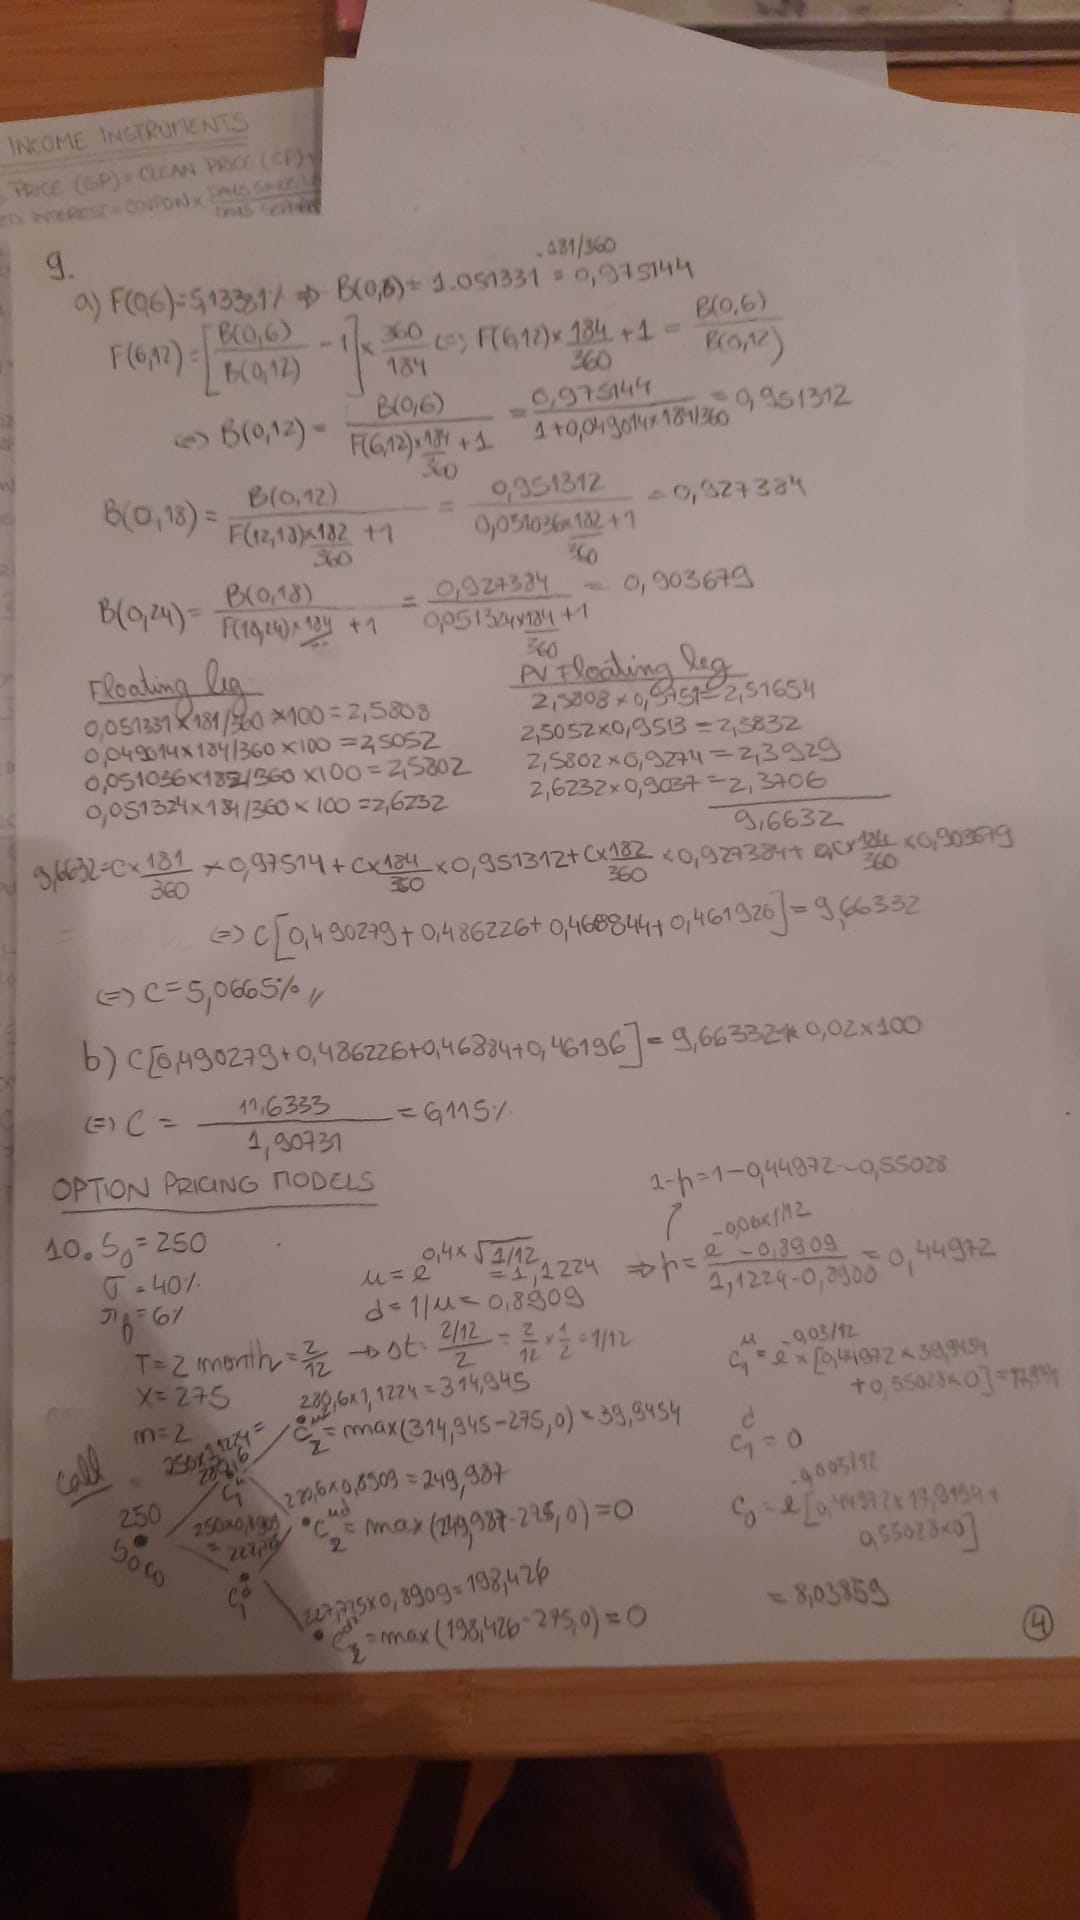 INCOME INSTRUMENTS
PRICE (GP) = CLEAN PRICE (CP) +
INTEREST = COUPON x
9.
a) F(0,6) = 5,13331% => B(0,6) = 1.051331^-181/360 = 0,975144
F(6,12) = [B(0,6)/B(0,12) - 1] x 360/184 <=> F(6,12) x 184/360 + 1 = B(0,6)/B(0,12)
<=> B(0,12) = B(0,6)/(F(6,12) x 184/360 + 1) = 0,975144/(1+0,049014x184/360) = 0,951312
B(0,18) = B(0,12)/(F(12,18)x182/360 + 1) = 0,951312/(0,051036x182/360 + 1) = 0,927384
B(0,24) = B(0,18)/(F(18,24)x184/... + 1) = 0,927384/(0,051324x184/360 + 1) = 0,903679
Floating leg
0,051331x181/360x100 = 2,5808
0,049014x184/360x100 = 2,5052
0,051036x182/360x100 = 2,5802
0,051324x184/360x100 = 2,6232
PV Floating leg
2,5808x0,9751 = 2,51654
2,5052x0,9513 = 2,3832
2,5802x0,9274 = 2,3929
2,6232x0,9037 = 2,3706
9,6632
9,6632 = Cx181/360 x 0,97514 + Cx184/360 x 0,951312 + Cx182/360 x 0,927384 + Cx184/360 x 0,903679
<=> C[0,490279 + 0,486226 + 0,468844 + 0,461926] = 9,66332
<=> C = 5,0665% //
b) C[0,490279 + 0,486226 + 0,46884 + 0,46196] = 9,66332 + 0,02x100
<=> C = 11,6333/1,90731 = 6,115%
OPTION PRICING MODELS
1-p = 1-0,44972 = 0,55028
10. S0 = 250
σ = 40%
rf = 6%
T = 2 month = 2/12 -> Δt = (2/12)/2 = 2/12 x 1/2 = 1/12
X = 275
m = 2
u = e^0,4x√1/12 = 1,1224
d = 1/u = 0,8909
=> p = (e^-0,06x1/12 - 0,8909)/(1,1224-0,8908) = 0,44972
Call
250
S0 C0
250x1,1224 = 280,6
C1^u
250x0,8909
C1^d
280,6x1,1224 = 314,945
C2^u² = max(314,945-275,0) = 39,9454
280,6x0,8909 = 249,987
C2^ud = max(249,987-275,0) = 0
227,725x0,8909 = 198,426
C2^d² = max(198,426-275,0) = 0
C1^u = e x [0,44972 x 39,9454
+ 0,55028x0] =
C1^d = 0
C0 = e [0,44972x17,8754 +
0,55028x0]
= 8,03859
4